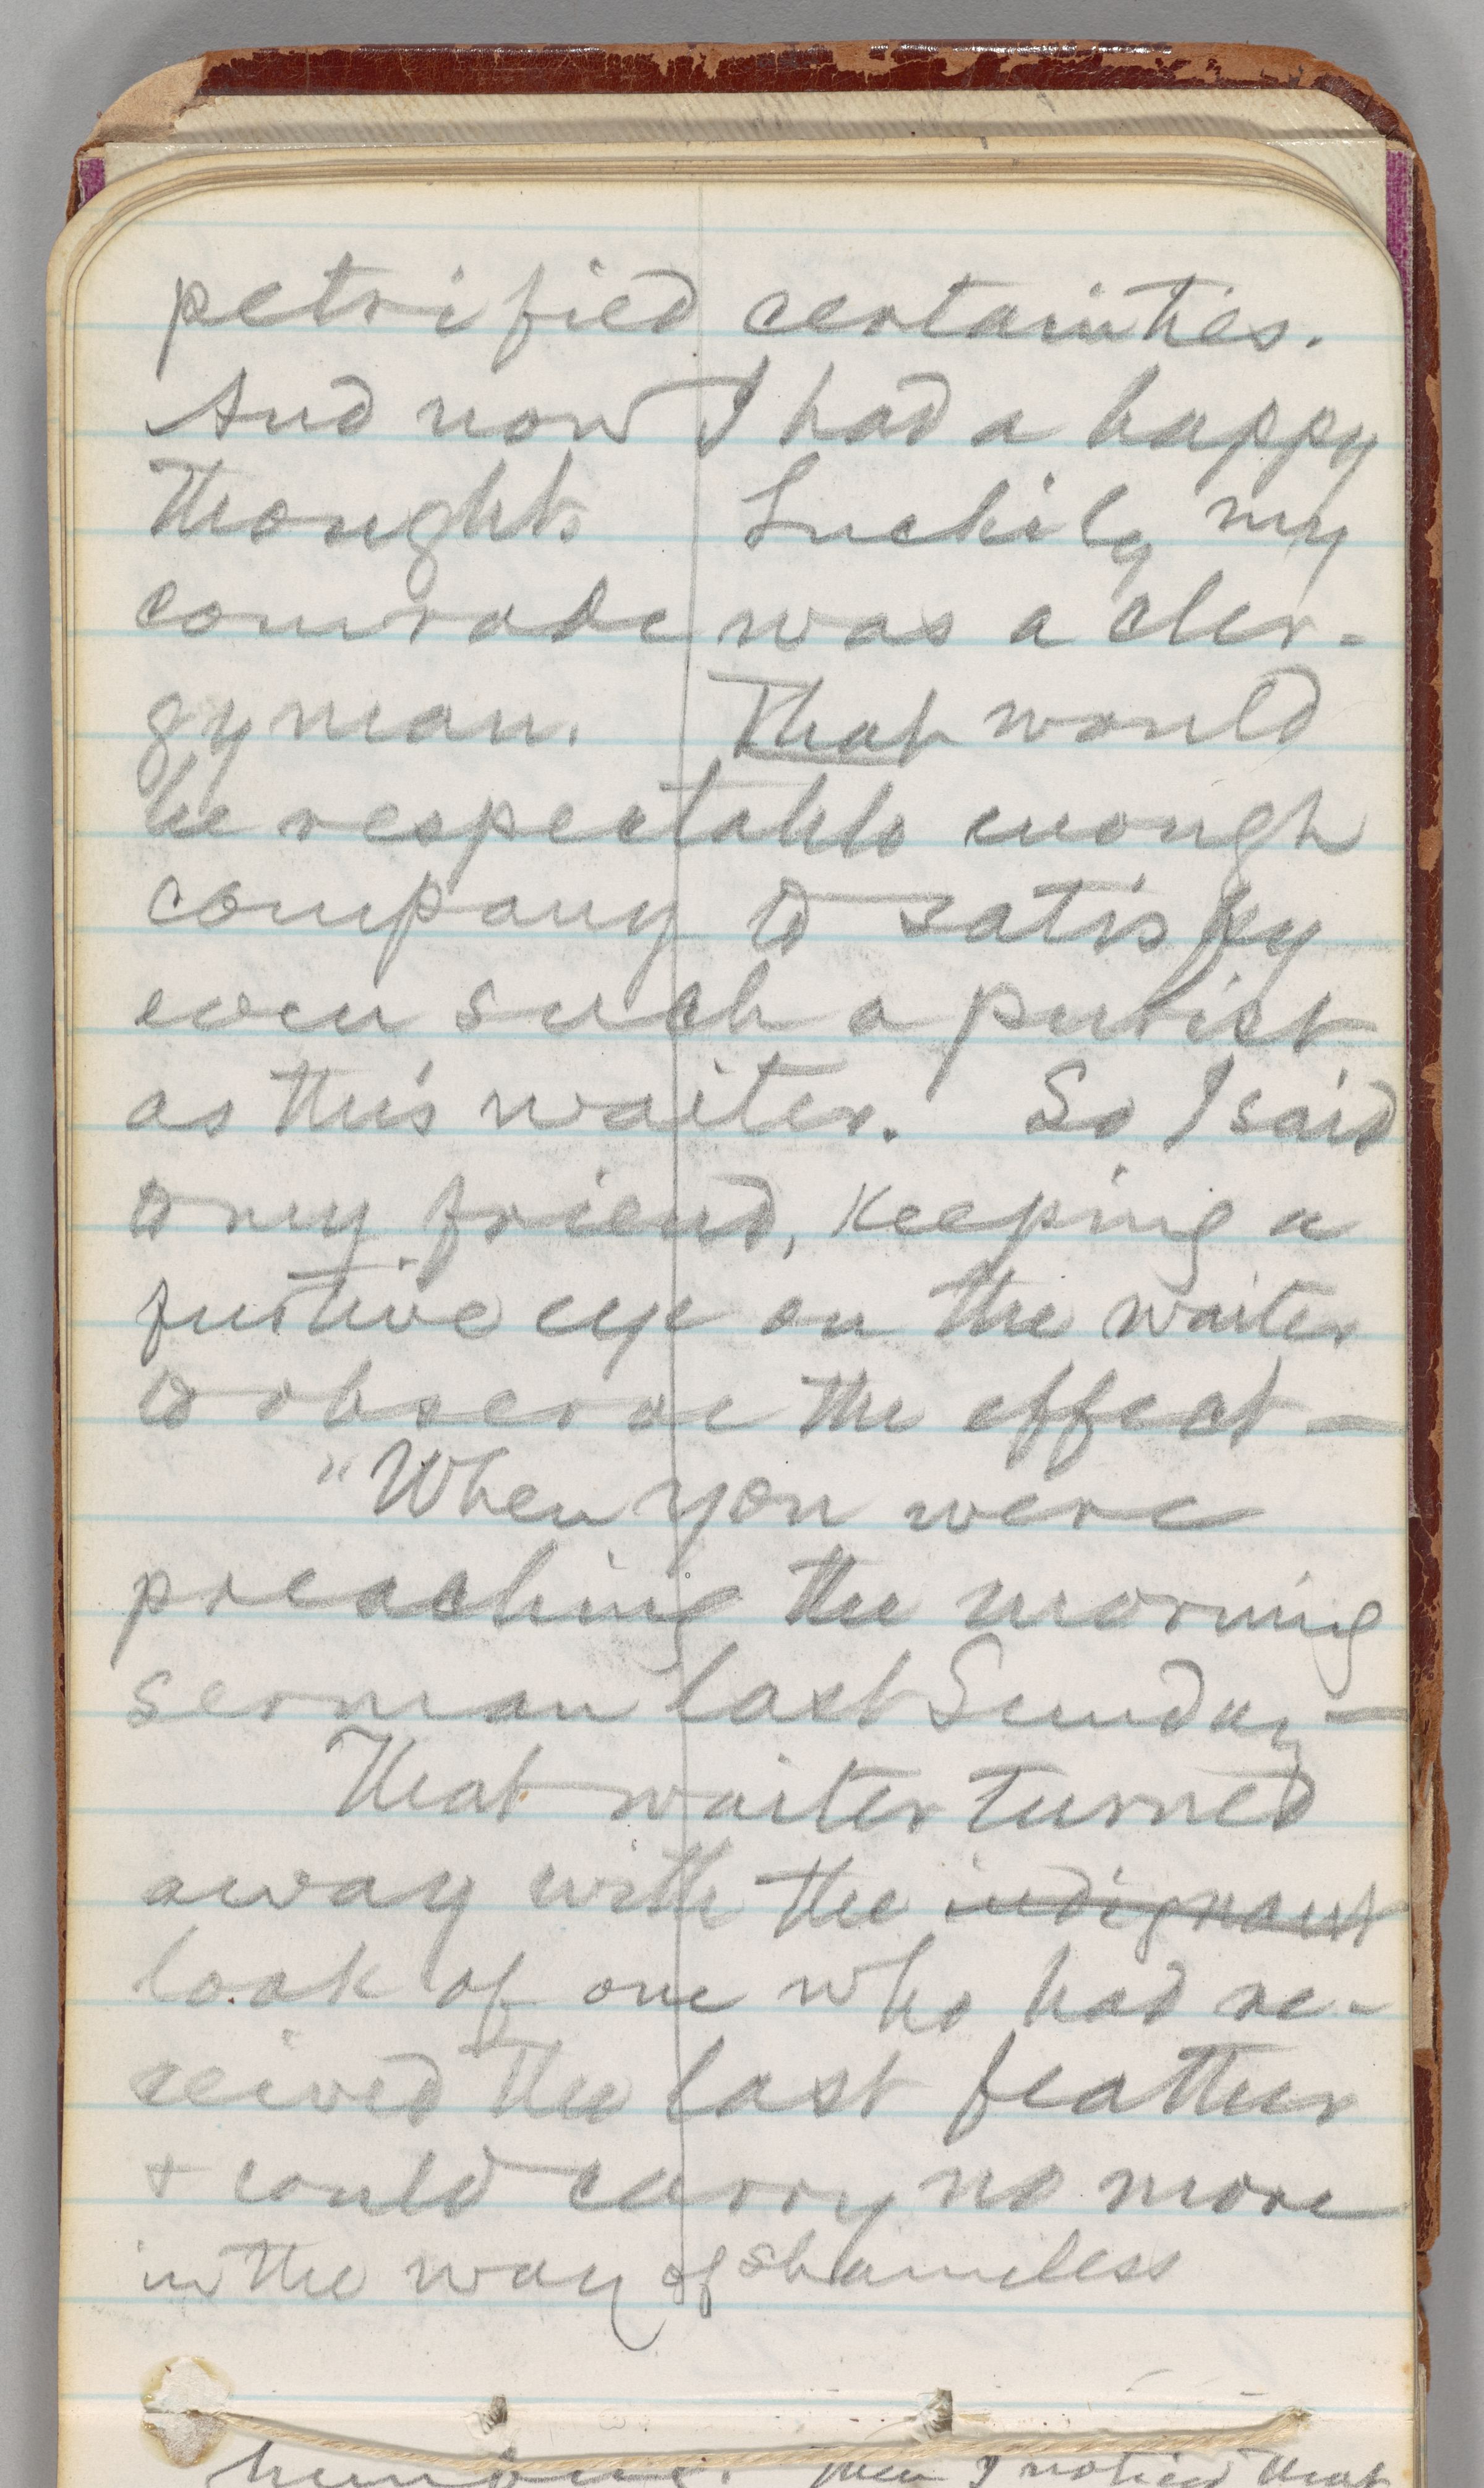 petrified certainties.
And now I had a happy
thought. Luckily my
comrade was a cler-
gyman. That would
be respectable enough
company to satisfy
even such a purist
as this waiter. So I said
to my friend, keeping a
furtive eye on the waiter
to observe the effect —
"When you were
preaching the morning
sermon last Sunday —
That waiter turned
away with the indignant
look of one who had re-
ceived the last feather
& could carry no more
in the way of shameless
humbug. Then I noticed that